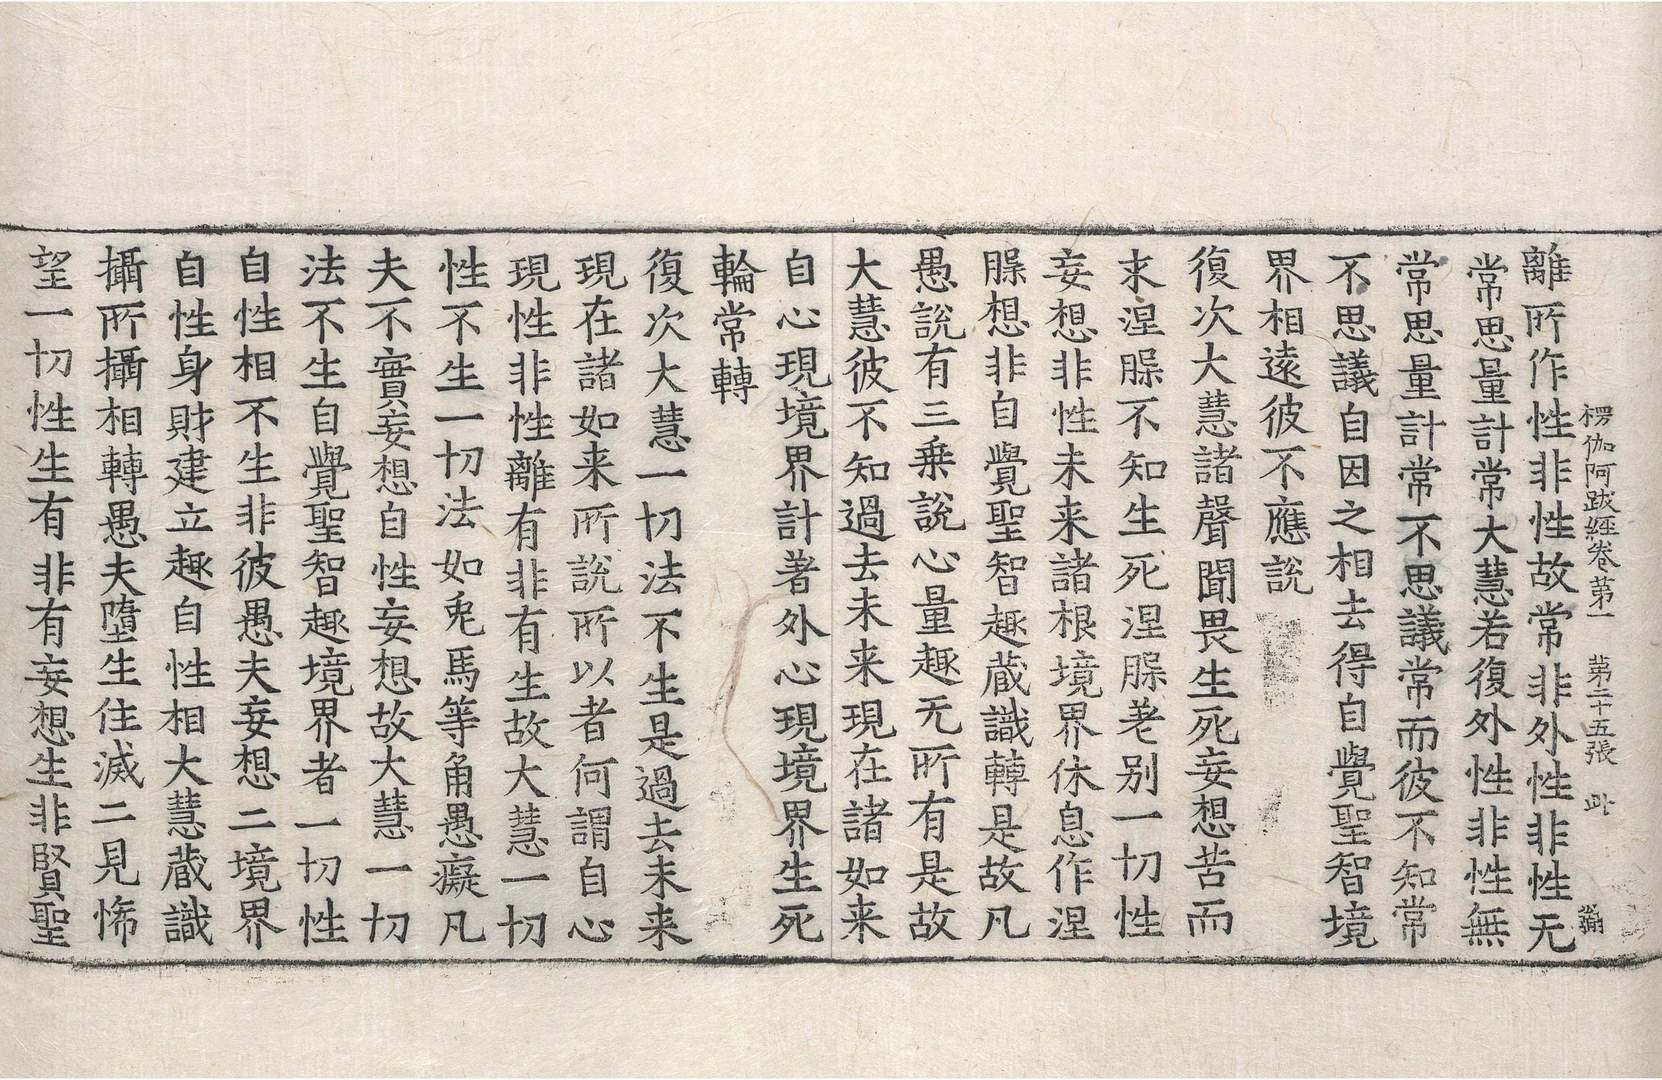 楞伽阿跋經卷苐一　苐二十五張
離所作性非性故常非外性非性无
常思量計常大慧若復外性非性無
常思量計常不思議常而彼不知常
不思議自因之相去得自覺聖智境
界相遠彼不應説
復次大慧諸聲聞畏生死妄想苦而
求涅槃不知生死涅槃差别一切性
妄想非性未来諸根境界休息作涅
槃想非自覺聖智趣蔵識轉是故凡
愚説有三乗説心量趣无所有是故
大慧彼不知過去未来現在諸如来
自心現境界計著外心現境界生死
輪常轉
復次大慧一切法不生是過去未来
現在諸如来所説所以者何謂自心
現性非性離有非有生故大慧一切
性不生一切法如兎馬等角愚癡凡
夫不實妄想自性妄想故大慧一切
法不生自覺聖智趣境界者一切性
自性相不生非彼愚夫妄想二境界
自性身財建立趣自性相大慧蔵識
攝所攝相轉愚夫墮生住滅二見悕
望一切性生有非有妄想生非賢聖